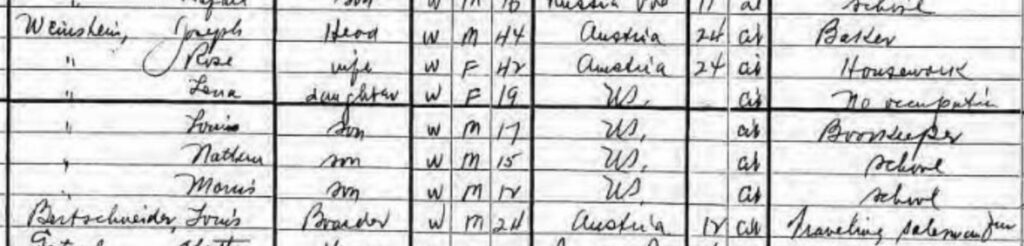 " son W M Russia 11 school
Weinstein, Joseph Head W M 44 Austria 24 al Baker
" Rose wife W F 42 Austria 24 al Housework
" Lena daughter W F 19 US. al No occupation
" Louis son W M 17 US. al Bookkeeper
" Nathan son W M 15 US. al school
" Morris son W M 12 US. al school
Bartschneider, Louis Boarder W M 24 Austria 12 al Traveling salesman